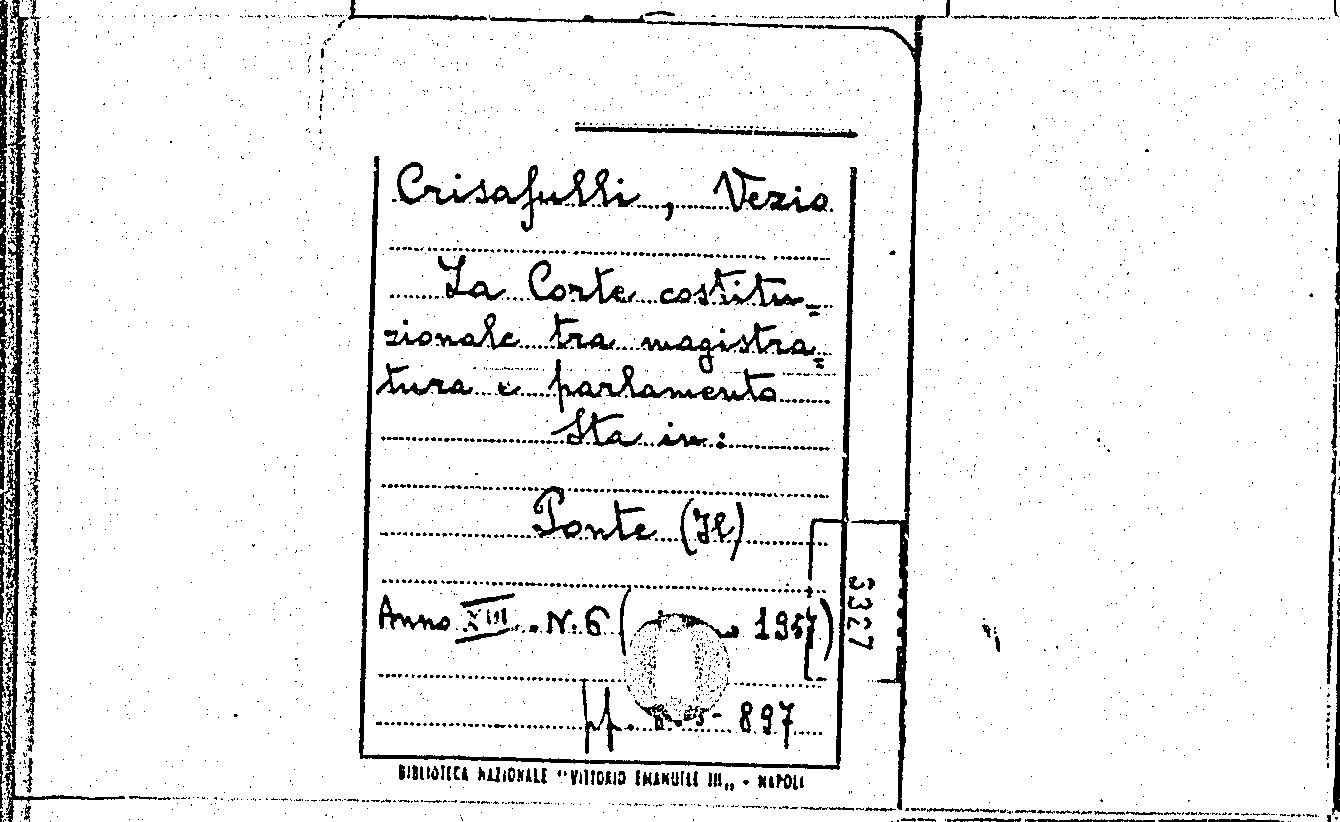 Crisafulli, Vezio
La Corte costitu=
zionale tra magistra=
tura e parlamento
Sta in:
Ponte (Il)
Anno XIII. N. 6 ( 1957)
3327
pp. - 897
BIBLIOTECA NAZIONALE "VITTORIO EMANUELE III„ - NAPOLI